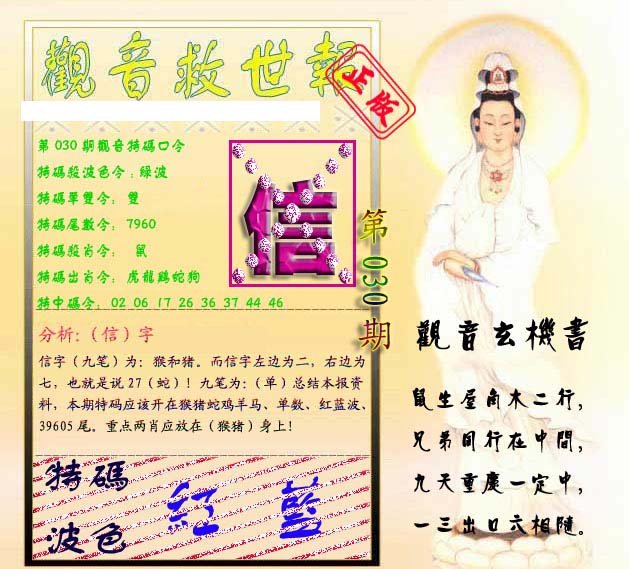 觀音救世報
正版
第030期觀音特碼口令
特碼殺波色令:綠波
特碼單雙令: 雙
特碼尾數令: 7960
特碼殺肖令: 鼠
特碼出肖令: 虎龍鷄蛇狗
特中碼令: 02 06 17 26 36 37 44 46
信
第030期
分析:(信)字
信字(九笔)为:猴和猪。而信字左边为二,右边为
七,也就是说27(蛇)!九笔为:(单)总结本报资
料,本期特码应该开在猴猪蛇鸡羊马、单数、红蓝波、
39605尾。重点两肖应放在(猴猪)身上!
特碼
波色
紅 藍
觀音玄機書
鼠生屋角木二行,
兄弟同行在中間,
九天重慶一定中,
一三出口六相隨。